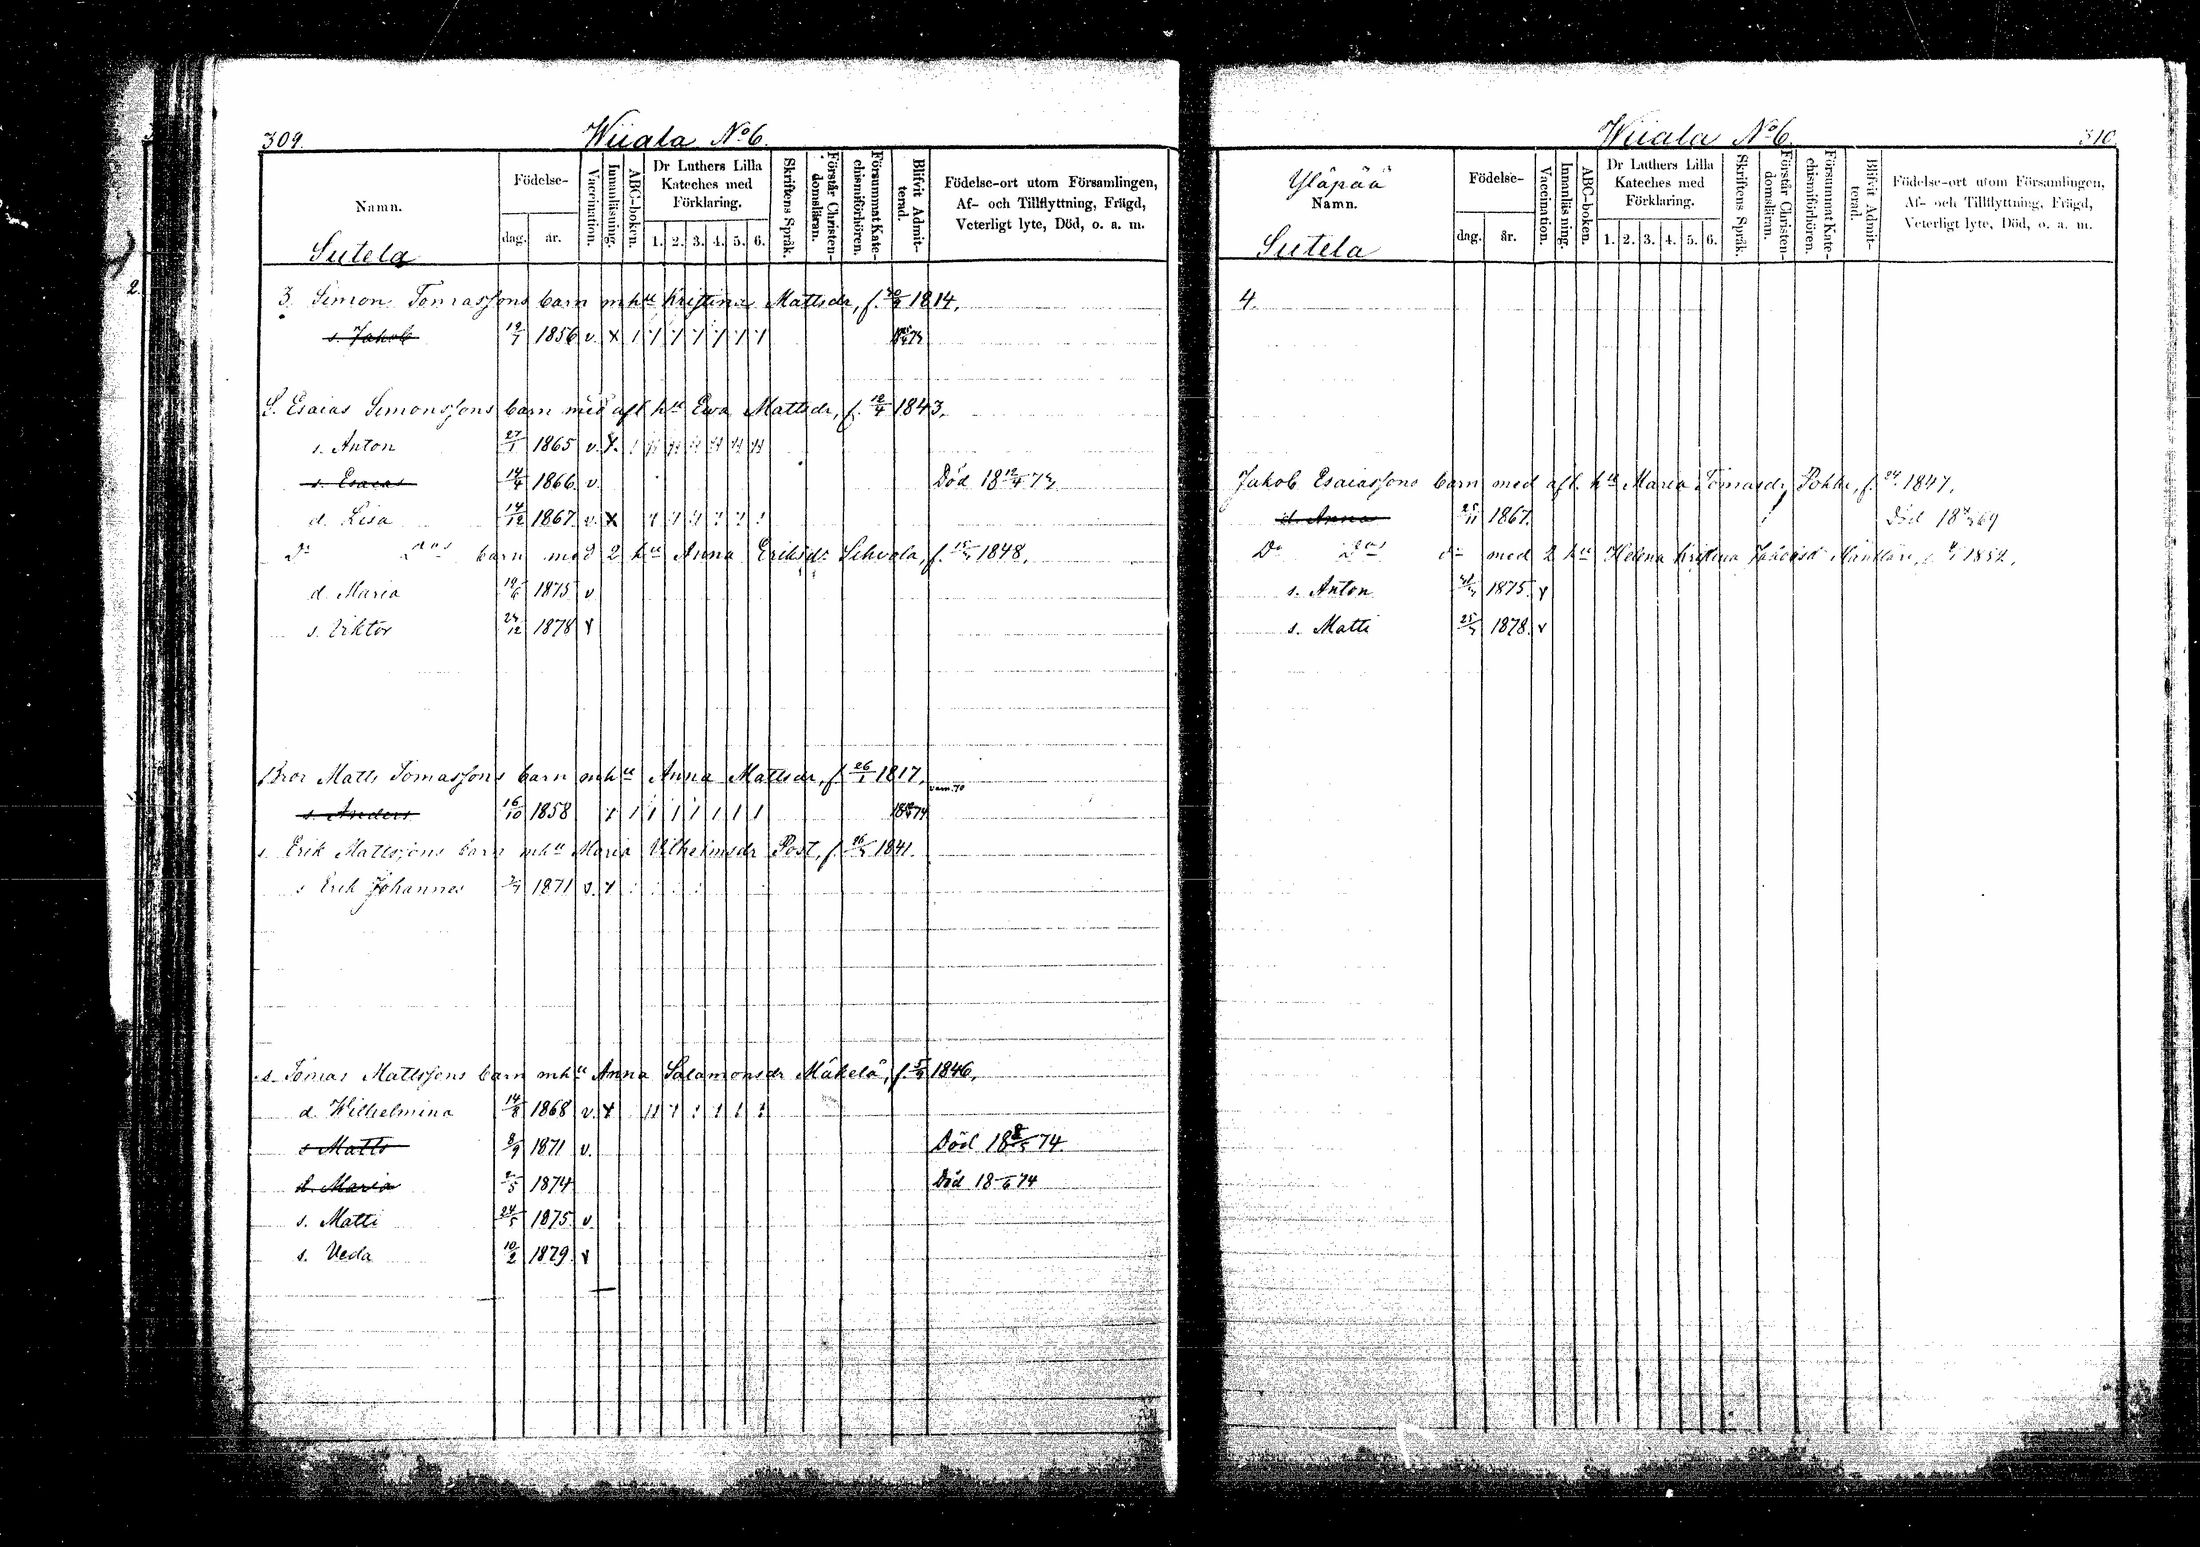 309.
Wiiala No 6.
Namn.
Sutela
Födelse-
dag. år.
Vaccination.
Innanläsning.
ABC-boken.
Dr Luthers Lilla Kateches med Förklaring.
1. 2. 3. 4. 5. 6.
Skriftens Språk.
Förstår Christendomsläran.
Försummat Katechismiförhören.
Blifvit Admitterad.
Födelse-ort utom Församlingen, Af- och Tillflyttning, Frägd, Veterligt lyte, Död, o. a. m.
2.
3. Simon Tomassons barn m hu Kristina Mattsdr, f. 1814.
s. Jakob 1856 v. x 1 1 1 1 1 1 1
S. Esaias Simonssons barn med afl hu Ewa Mattsdr, f. 12/4 1843.
s. Anton 27/1 1865 v. x.
s. Esaias 14/4 1866 v Död 18 12/4 73
d. Lisa 14/12 1867 v. x
Do Dos barn med 2 hu Anna Eriksdr Sihvola, f. 1848.
d. Maria 19/6 1875 v
s. Viktor 1878 v
Bror Matts Tomassons barn m hu Anna Mattsdr, f. 26/1 1817.
s. Anders 16/10 1858 x 1 1 1 1 1 1 1
s. Erik Mattssons barn m hu Maria Vilhelmsdr Post, f. 1841.
s Erik Johannes 1871 v. x
s. Tomas Mattssons barn m hu Anna Salamonsdr Mäkelä, f. 1846.
d. Wilhelmina 14/8 1868 v. x
s Matts 8/9 1871 v. Död 18 74.
d. Maria 1874 Död 18 74
s. Matti 24/5 1875 v
s. Veda 10/2 1879 v
310.
Wiiala No 6.
Yläpää
Namn.
Sutela
Födelse-
dag. år.
Vaccination.
Innanläsning.
ABC-boken.
Dr Luthers Lilla Kateches med Förklaring.
1. 2. 3. 4. 5. 6.
Skriftens Språk.
Förstår Christendomsläran.
Försummat Katechismiförhören.
Blifvit Admitterad.
Födelse-ort utom Församlingen, Af- och Tillflyttning, Frägd, Veterligt lyte, Död, o. a. m.
4.
Jakob Esaiassons barn med afl. hu Maria Tomasdr, f. 1847.
d. Anna 25/11 1867. Död 18 69
Do Dos do med 2 hu Helena Kristina
s. Anton 1875. v
s. Matti 1878. v